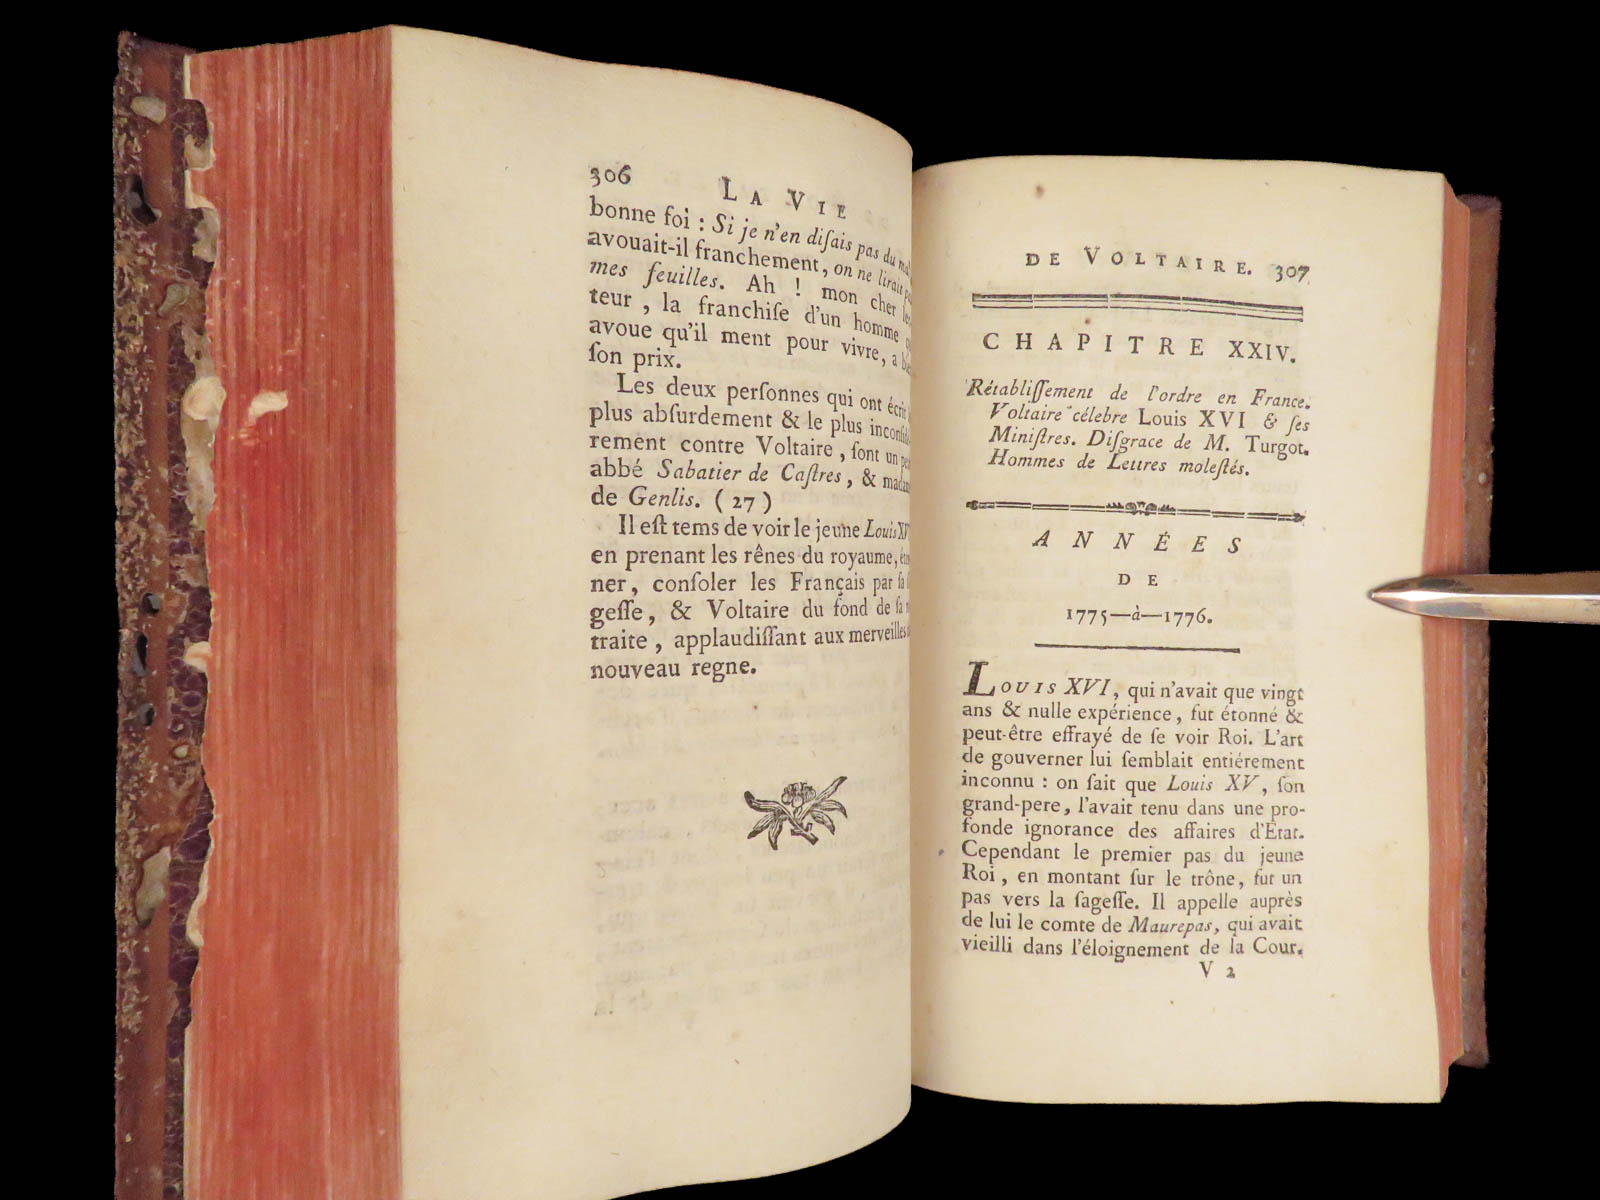 306 LA VIE
bonne foi : Si je n'en diſais pas du mal
avouait-il franchement, on ne lirait
mes feuilles. Ah ! mon cher
teur, la franchiſe d'un homme
avoue qu'il ment pour vivre, a
ſon prix.
Les deux perſonnes qui ont écrit
plus abſurdement & le plus
rement contre Voltaire, ſont un
abbé Sabatier de Caſtres, &
de Genlis. (27)
Il eſt tems de voir le jeune Louis
en prenant les rênes du royaume,
ner, conſoler les Français par ſa
geſſe, & Voltaire du fond de ſa
traite, applaudiſſant aux merveilles
nouveau regne.
DE VOLTAIRE. 307
CHAPITRE XXIV.
Rétabliſſement de l'ordre en France.
Voltaire célebre Louis XVI & ſes
Miniſtres. Diſgrace de M. Turgot.
Hommes de Lettres moleſtés.
ANNÉES
DE
1775—à—1776.
LOUIS XVI, qui n'avait que vingt
ans & nulle expérience, fut étonné &
peut-être effrayé de ſe voir Roi. L'art
de gouverner lui ſemblait entiérement
inconnu : on ſait que Louis XV, ſon
grand-pere, l'avait tenu dans une pro-
fonde ignorance des affaires d'Etat.
Cependant le premier pas du jeune
Roi, en montant ſur le trône, fut un
pas vers la ſageſſe. Il appelle auprès
de lui le comte de Maurepas, qui avait
vieilli dans l'éloignement de la Cour.
V 2